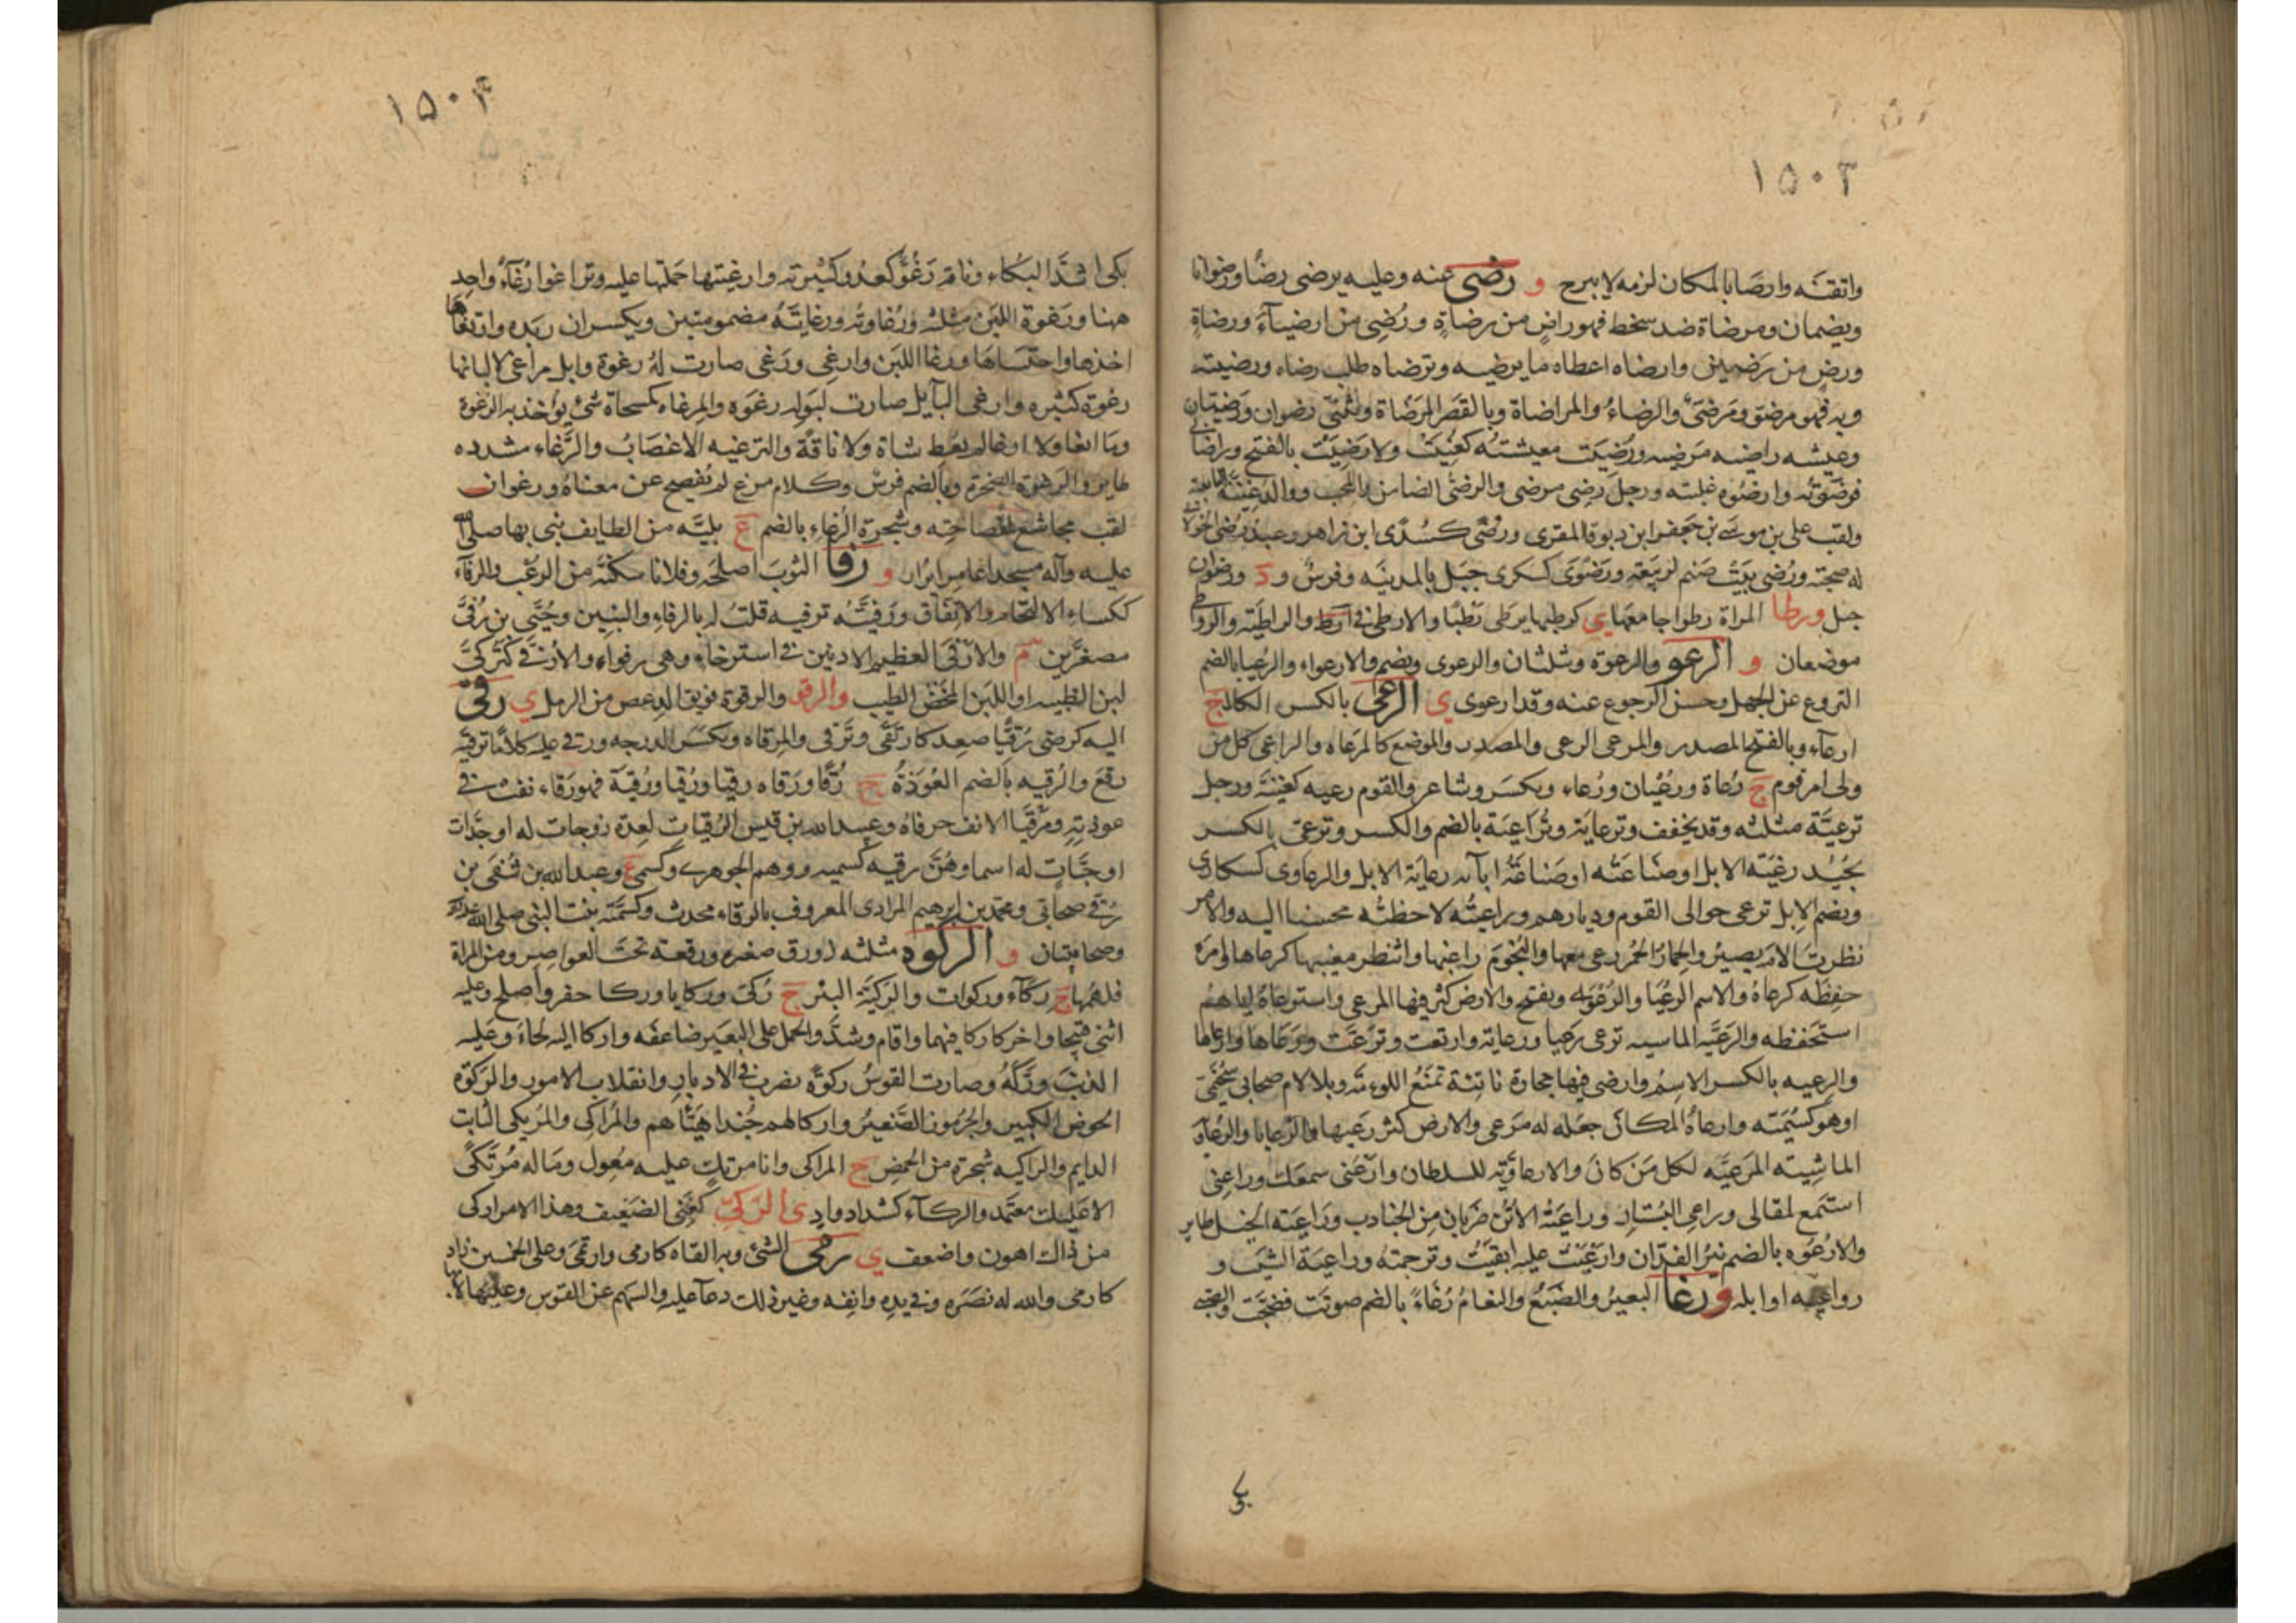 ١٥٠٣
واتقنه وارضا بالمكان لزمه لا يبرح و رضى عنه وعليه يرضى رضًا ورضوانا
ويضمان ومرضاة ضد سخط فهو راض من رضاةٍ ورُضِى من ارضيآء ورضاةٍ
ورضٍ من رَضين وارضاه اعطاه ما يرضيه وترضاه طلب رضاه ورضيته
وبه فهو مرضو ومَرضىٌّ والرضاءُ والمراضاة وبالقصر المرَضاة وتُثنّى رضوان ورَضيَان
وعيشه راضيه مَرضيه ورُضِيَت معيشته كغُنِيَت ولا رَضِيَت بالفتح وراضانى
فرضَوْتُه وارضُوه غلبته ورجل رَضِى مرضى والرضىُ الضامن والمحب ووالد غنيَّة التابعية
ولقب على بن موسَى بن جَعفر ابن دبوقا المقرى ورُضَّى كسُدَّى ابن زاهر وعبد رُضى الخولانى
له صحبته ورُضى بيَتُ صَنم لربيعة ورَضْوَى كسكرى جبَل بالمدينَه وفرسٌ و د ورضوان
جبل ورطا المراة رطوا جامعَها ي كرطيها يرطى رَطيًا والارطى فى ا ر ط والراطية والروا طى
موضعان و الرعو والرعوة وثلثان والرعوى ويضم والارعواء والرُعيا بالضم
النزوع عن الجهل وحسن الرجوع عنه وقد ارعوى ي الرعى بالكسر الكلا ج
ارعآء وبالفتح المصدر والمرعى الرعى والمصدر والموضع كالمرَعاه والراعى كل من
ولى امر قوم ج رُعاة ورُعْيان ورُعاء ويكسَر وشاعر والقوم رعيه كغنيَّة ورجل
ترعيَّة مثلثه وقد يخفف وترعاية وتُرَاعِيَة بالضم والكسر وترعى بالكسر
يجُيد رِعْيَتَه الابل او صنَاعَتُه او صنَاعَةُ ابآئه رعايَة الابل والرعاوى كسكارى
ويضم الابل ترعى حوالى القوم وديارهم وراعيتُه لاحظتُه محسنا اليه والامر
نظرت الام يصير والحمارُ الحُمُر رعى معها والنُجُوم راقبها وانتظر مغيبها كرعاها وامره
حفِظَه كرعاهُ والاسم الرعُيَا والرُعْوَى ويفتح والارض كثر فيها المرعى واسترعاهُ اياهم
استحَفظه والرَعيَّه الماسيه ترعى رَعيا ورعاية وارتعت وترعَّت ورَعَاها وارعاها
والرعيه بالكسر الاسمُ وارض فيها حجارة ناتئة تمنَعُ اللومَة وبلا لام صحابى سُحَيْمَى
او هو كسُمَيَّته وارعاهُ المكان جعله له مرَعى والارض كثر رَعيها والرَعايا والرَعاوَيَة
الماشيته المَرعيَّه لكل مَن كانَ والارعاوَّيه للسلطان وارْعَنى سمعَك وراعِنى
استَمع لمقالى وراعى البُستَان وراعيَة الاتُن ضَربان مِن الجَنادب ورَاعيَته الخيل طاير
والارُعوَه بالضم نيرُ الفدّان وارْعَيْتُ عليه ابقَيْتُ وترحمته وراعيَة الشيَب و
رواعيه اوايله ورغا البعيرُ والضَبُعُ والنعامُ رُغاءً بالضم صوّتَت فضجّت والصبى
بكى
١٥٠۴
بكى اشدَّ البكاء وناقة رَغُوٌّ كعدُو كثيرته وارغيتها حَملتها عليه وتراغوا رُغآءٌ واحد
ههنا ورَغوة اللبَن مثلثه ورُغاوته ورغايتَهُ مضمومتين ويكسران زبَده وارتغاها
اخذها واحتسَاها ورغا اللبن وارغى ورَغى صارت لهُ رغوة وابل مراغى لالبانها
رغوة كثيره وارغى البآيل صارت لبَوله رغوَه والمِرغاه كمسحاة شئ يوُخذ به الرَغوة
ومَا ارغا ولا اثغا لم يعُط شاة ولا ناقةً والترغيه الاغضَابُ والرَّغاء مشدده
طاير والرَغوَة الصخرة وبالضم فرسٌ وكلام مرغ لم يُفصِح عن معناهُ ورغوان
لقب مجاشع لفصاحتِه وشجرة الرغاء بالضم ع بليَّه من الطايف بنى بها صلى الله
عليه وآله مسجدا عامرا يُزار و رفا الثوبَ اصلحَه وفلانا سكنَّهُ من الرعُب والرفآء
ككساء الالتحام والاتفاق ورَفيَّتُه ترفيه قلتُ له بالرفاءِ والبنين وحُيَىِ بن رُفَىَّ
مصغرَّين م والارْفَى العظيم الاذنين فى استرخاءٍ وهى رفواء والاُرفى كتركىَّ
لبن الظبيه او اللبن المَحض الطيب والرقو والرقوة فويق الدِعص من الرمل ي رقى
اليه كرضى رُقيًّا صعِد كارتقَى وتَرقى والمِرقاه ويكسر الدرجه ورقى عليه كلاماً ترقيَة
رفعَ والرُقيه بالضم العُوَذَةُ ج رُقًا ورَقاه رقيا ورُقيا ورُقيَة فهو رَقاء نفث فى
عوذته ومَرْقيَا الانف حرفاهُ وعبيد الله بن قيس الرُقيات لعدة زوجات له او جَدَّات
او حِبَّات له اسماوهُنَّ رقيه كسميه ووهم الجوهرى وكسمى ع وعبد الله بن شُفَى بن
رُقى صحابى ومحمد بن ابرهيم المرادى المعروف بالرقاء محدث وكسُميَّة بنت النبى صلى الله عليه وآله
وصحابيتان و الركوه مثلثه زورق صغيره ورقعة تحت العواصِر ومن المراة
فلهمُها ج ركآء وركوات والرَكيَّة البئر ج رَكىّ وركايا وركا حفر واصلح وعليه
اثنى قبيحا واخر كاركا فيهما واقام وشدَّ والحمل على البعَير ضاعفَه واركا اليه لجاءَ وعليه
الذنبَ ورَّكَهُ وصارت القوسُ ركوةً يضرب فى الادبار وانقلاب الامور والركوة
الحوض الكبير والجُرمُوز الصَّغيرُ واركا لهم جُندا هَيَّاهم والمُراكى والمُريكى الثابت
الدايم والراكيه شجرة من الحمضِ ج المراكى وانا مرتكٍ عليه مُعول وما له مُرتَكىً
الا عَليك معتمد والركآء كشداد وادٍ ى الرَكىّ كغِنى الضَعيف وهذا الامر اركى
من ذاك اهون واضعف ي رمى الشئَ وبه القاه كارمى وارتمَى وعلى الخمسين زاد
كارمى والله له نصَرَه وفى يدِه وانفِه وغير ذلك دعآ عليه والسَهم عن القوس وعليها لا بها